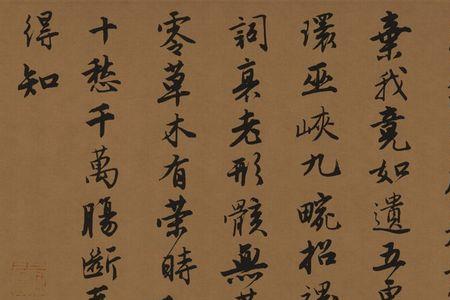 棄我竟如遺五更
環巫峽九畹招
詞衰老形骸無
零草木有榮時
十愁千萬腸斷
得知